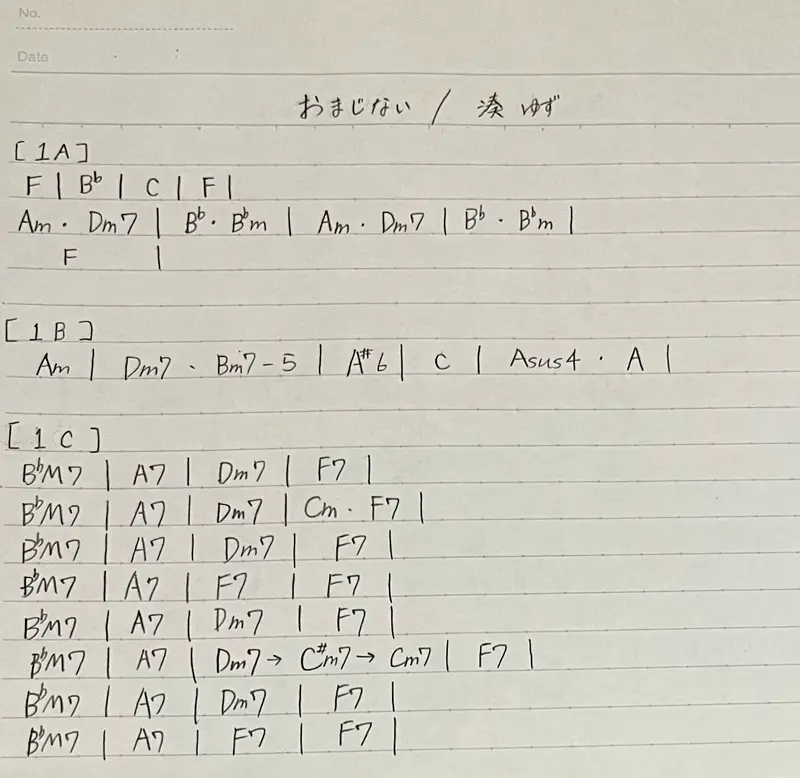 No.
Date
おまじない / 湊 ゆず
[1A]
F | B♭ | C | F |
Am・Dm7 | B♭・B♭m | Am・Dm7 | B♭・B♭m |
F |
[1B]
Am | Dm7・Bm7-5 | A#6 | C | Asus4・A |
[1C]
B♭M7 | A7 | Dm7 | F7 |
B♭M7 | A7 | Dm7 | Cm・F7 |
B♭M7 | A7 | Dm7 | F7 |
B♭M7 | A7 | F7 | F7 |
B♭M7 | A7 | Dm7 | F7 |
B♭M7 | A7 | Dm7→ C#m7→ Cm7 | F7 |
B♭M7 | A7 | Dm7 | F7 |
B♭M7 | A7 | F7 | F7 |